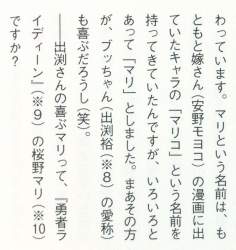 わっています。マリという名前は、も
ともと嫁さん(安野モヨコ)の漫画に出
ていたキャラの「マリコ」という名前を
持ってきていたんですが、いろいろと
あって「マリ」としました。まあその方
が、ブッちゃん(出渕裕(※8)の愛称)
も喜ぶだろうし(笑)。
――出渕さんの喜ぶマリって、『勇者ラ
イディーン』(※9)の桜野マリ(※10)
ですか?